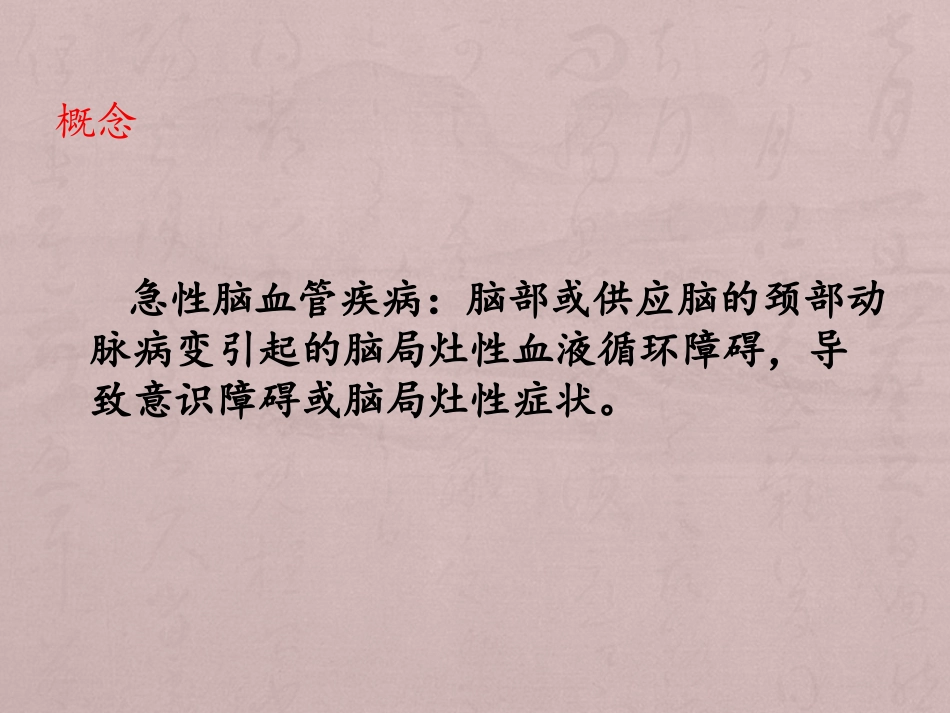 概念
急性脑血管疾病：脑部或供应脑的颈部动
脉病变引起的脑局灶性血液循环障碍，导
致意识障碍或脑局灶性症状。